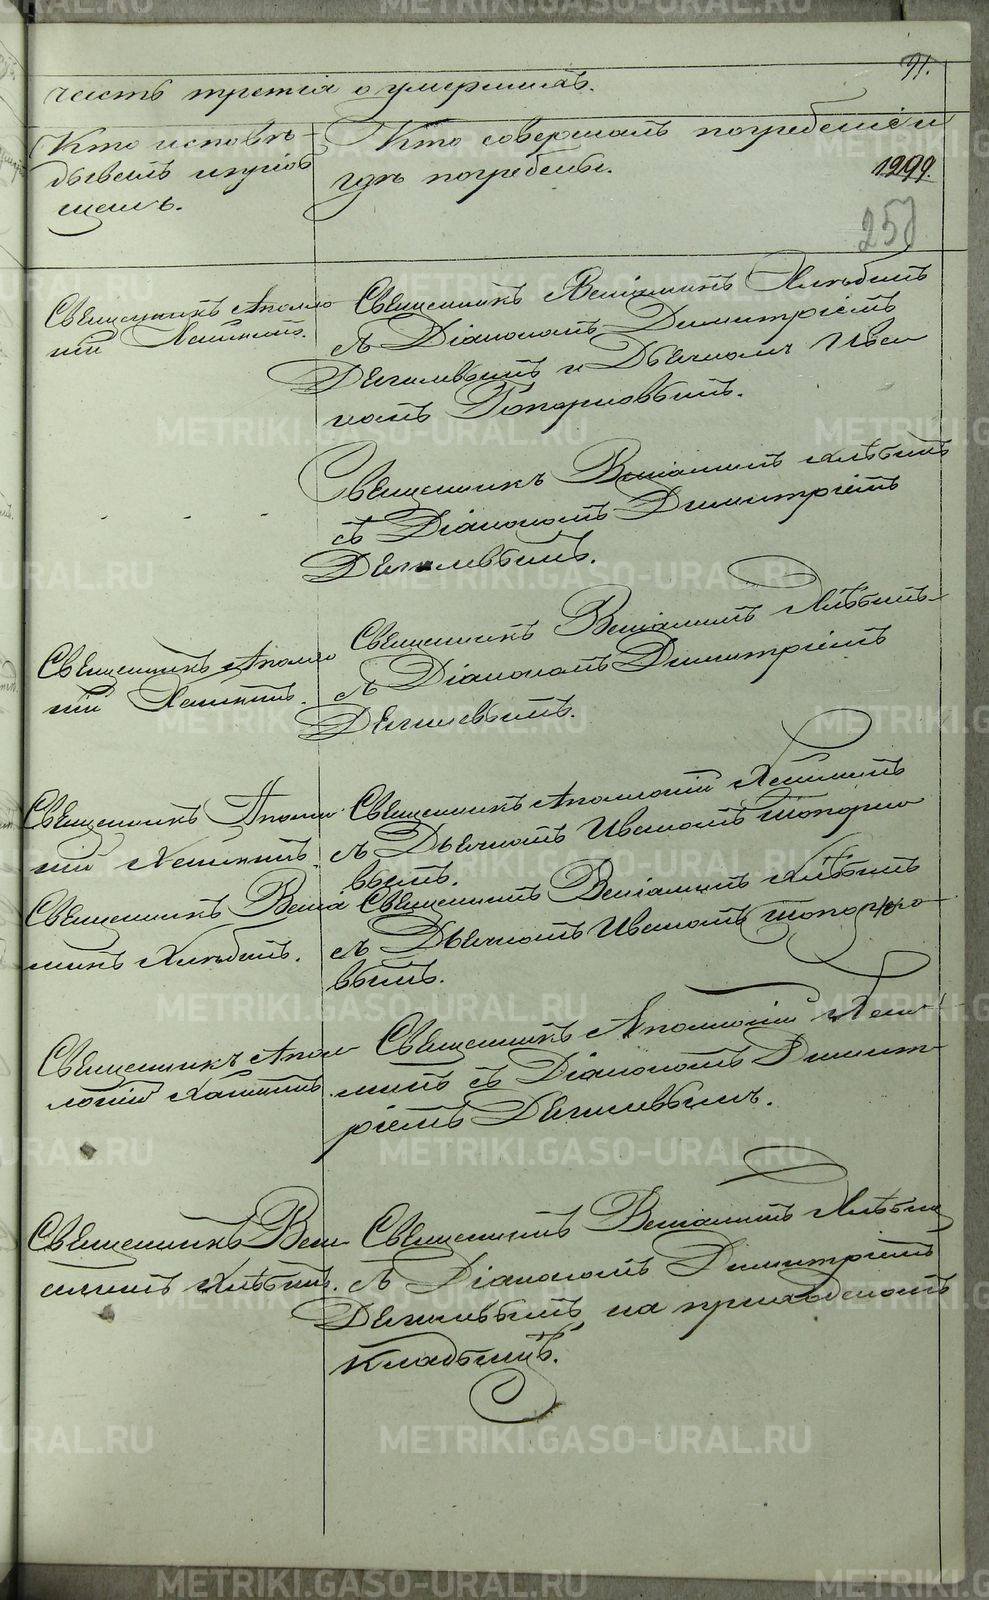 91.
часть третія о умершихъ.
Кто исповѣ-
дывалъ и пріоб
щалъ.
Кто совершалъ погребеніе и
гдѣ погребены.
1299.
250
Священникъ Аполло
ній Хашинъ.
Священникъ Веніаминъ Хлѣбинъ
съ Діакономъ Димитріемъ
Дягилевымъ и Дьячкомъ Ива
номъ Топорковымъ.
- - -
Священникъ Веніаминъ Хлѣбинъ
съ Діакономъ Димитріемъ
Дягилевымъ.
Священникъ Аполло
ній
Священникъ Веніаминъ Хлѣбинъ
съ Діакономъ Димитріемъ
Дягилевымъ.
Священникъ Аполло
ній
Священникъ Аполлоній
съ Дьячкомъ Иваномъ Топорко
вымъ.
Священникъ Веніа
минъ Хлѣбинъ.
Священникъ Веніаминъ Хлѣбинъ
съ Дьячкомъ Иваномъ Топорко
вымъ.
Священникъ Апол
лоній
Священникъ Аполлоній
съ Діакономъ Димит-
ріемъ Дягилевымъ.
Священникъ Вені
аминъ Хлѣбинъ.
Священникъ Веніаминъ Хлѣбинъ
съ Діакономъ Димитріемъ
Дягилевымъ на приходскомъ
кладбищѣ.
METRIKI.GASO-URAL.RU